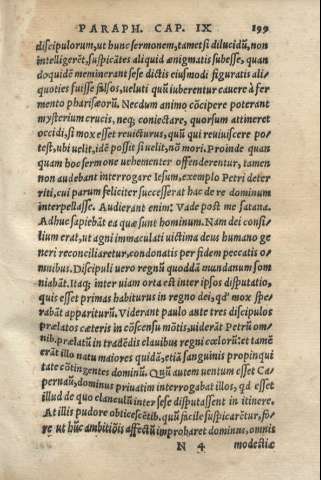 PARAPH. CAP. IX 199
discipulorum, ut hunc sermonem, tametsi dilucidũ, non
intelligerẽt, suspicãtes aliquid ænigmatis subesse, quan
doquidẽ meminerant sese dictis eiusmodi figuratis ali-
quoties fuisse falsos, ueluti quũ iuberentur cauere à fer
mento pharisæorũ. Necdum animo cõcipere poterant
mysterium crucis, neq; coniectare, quorsum attineret
occidi, si mox esset reuicturus, quũ qui reuiuiscere po-
test, ubi uelit, idẽ possit si uelit, nõ mori. Proinde quan
quam hoc sermone uehementer offenderentur, tamen
non audebant interrogare Iesum, exemplo Petri deter
riti, cui parum feliciter successerat hac de re dominum
interpellasse. Audierant enim: Vade post me satana.
Adhuc sapiebãt ea quæ sunt hominum. Nam dei consi
lium erat, ut agni immaculati uictima deus humano ge
neri reconciliaretur, condonatis per fidem peccatis o-
mnibus. Discipuli uero regnũ quoddã mundanum som
niabãt. Itaq; inter uiam orta est inter ipsos disputatio,
quis esset primas habiturus in regno dei, qd' mox spe-
rabãt appariturũ. Viderant paulo ante tres discipulos
prælatos cæteris in cõscensu mõtis, uiderãt Petrũ om-
nib. prælatũ in tradẽdis clauibus regni cœlorũ: et tamẽ
erãt illo natu maiores quidã, etiã sanguinis propinqui
tate cõtingentes dominũ. Quũ autem uentum esset Ca
pernaũ, dominus priuatim interrogabat illos, qd esset
illud de quo clanculũ inter sese disputassent in itinere.
At illis pudore obticescẽtib. quũ facile suspicarẽtur, fo-
re ut hũc ambitiõis affectũ improbaret dominus, omnis
N 4 modestiæ